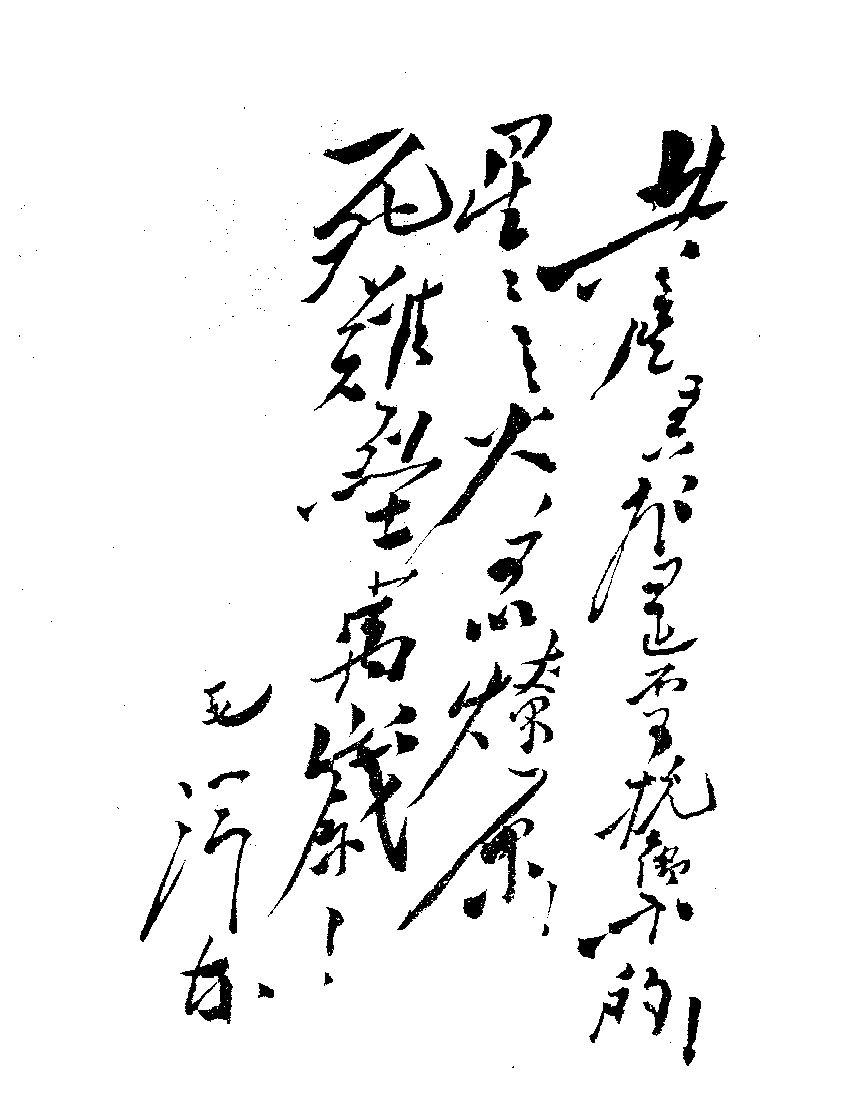 共產主義是不可抗禦的！
星星之火可以燎原！
死難烈士萬歲！
毛澤东